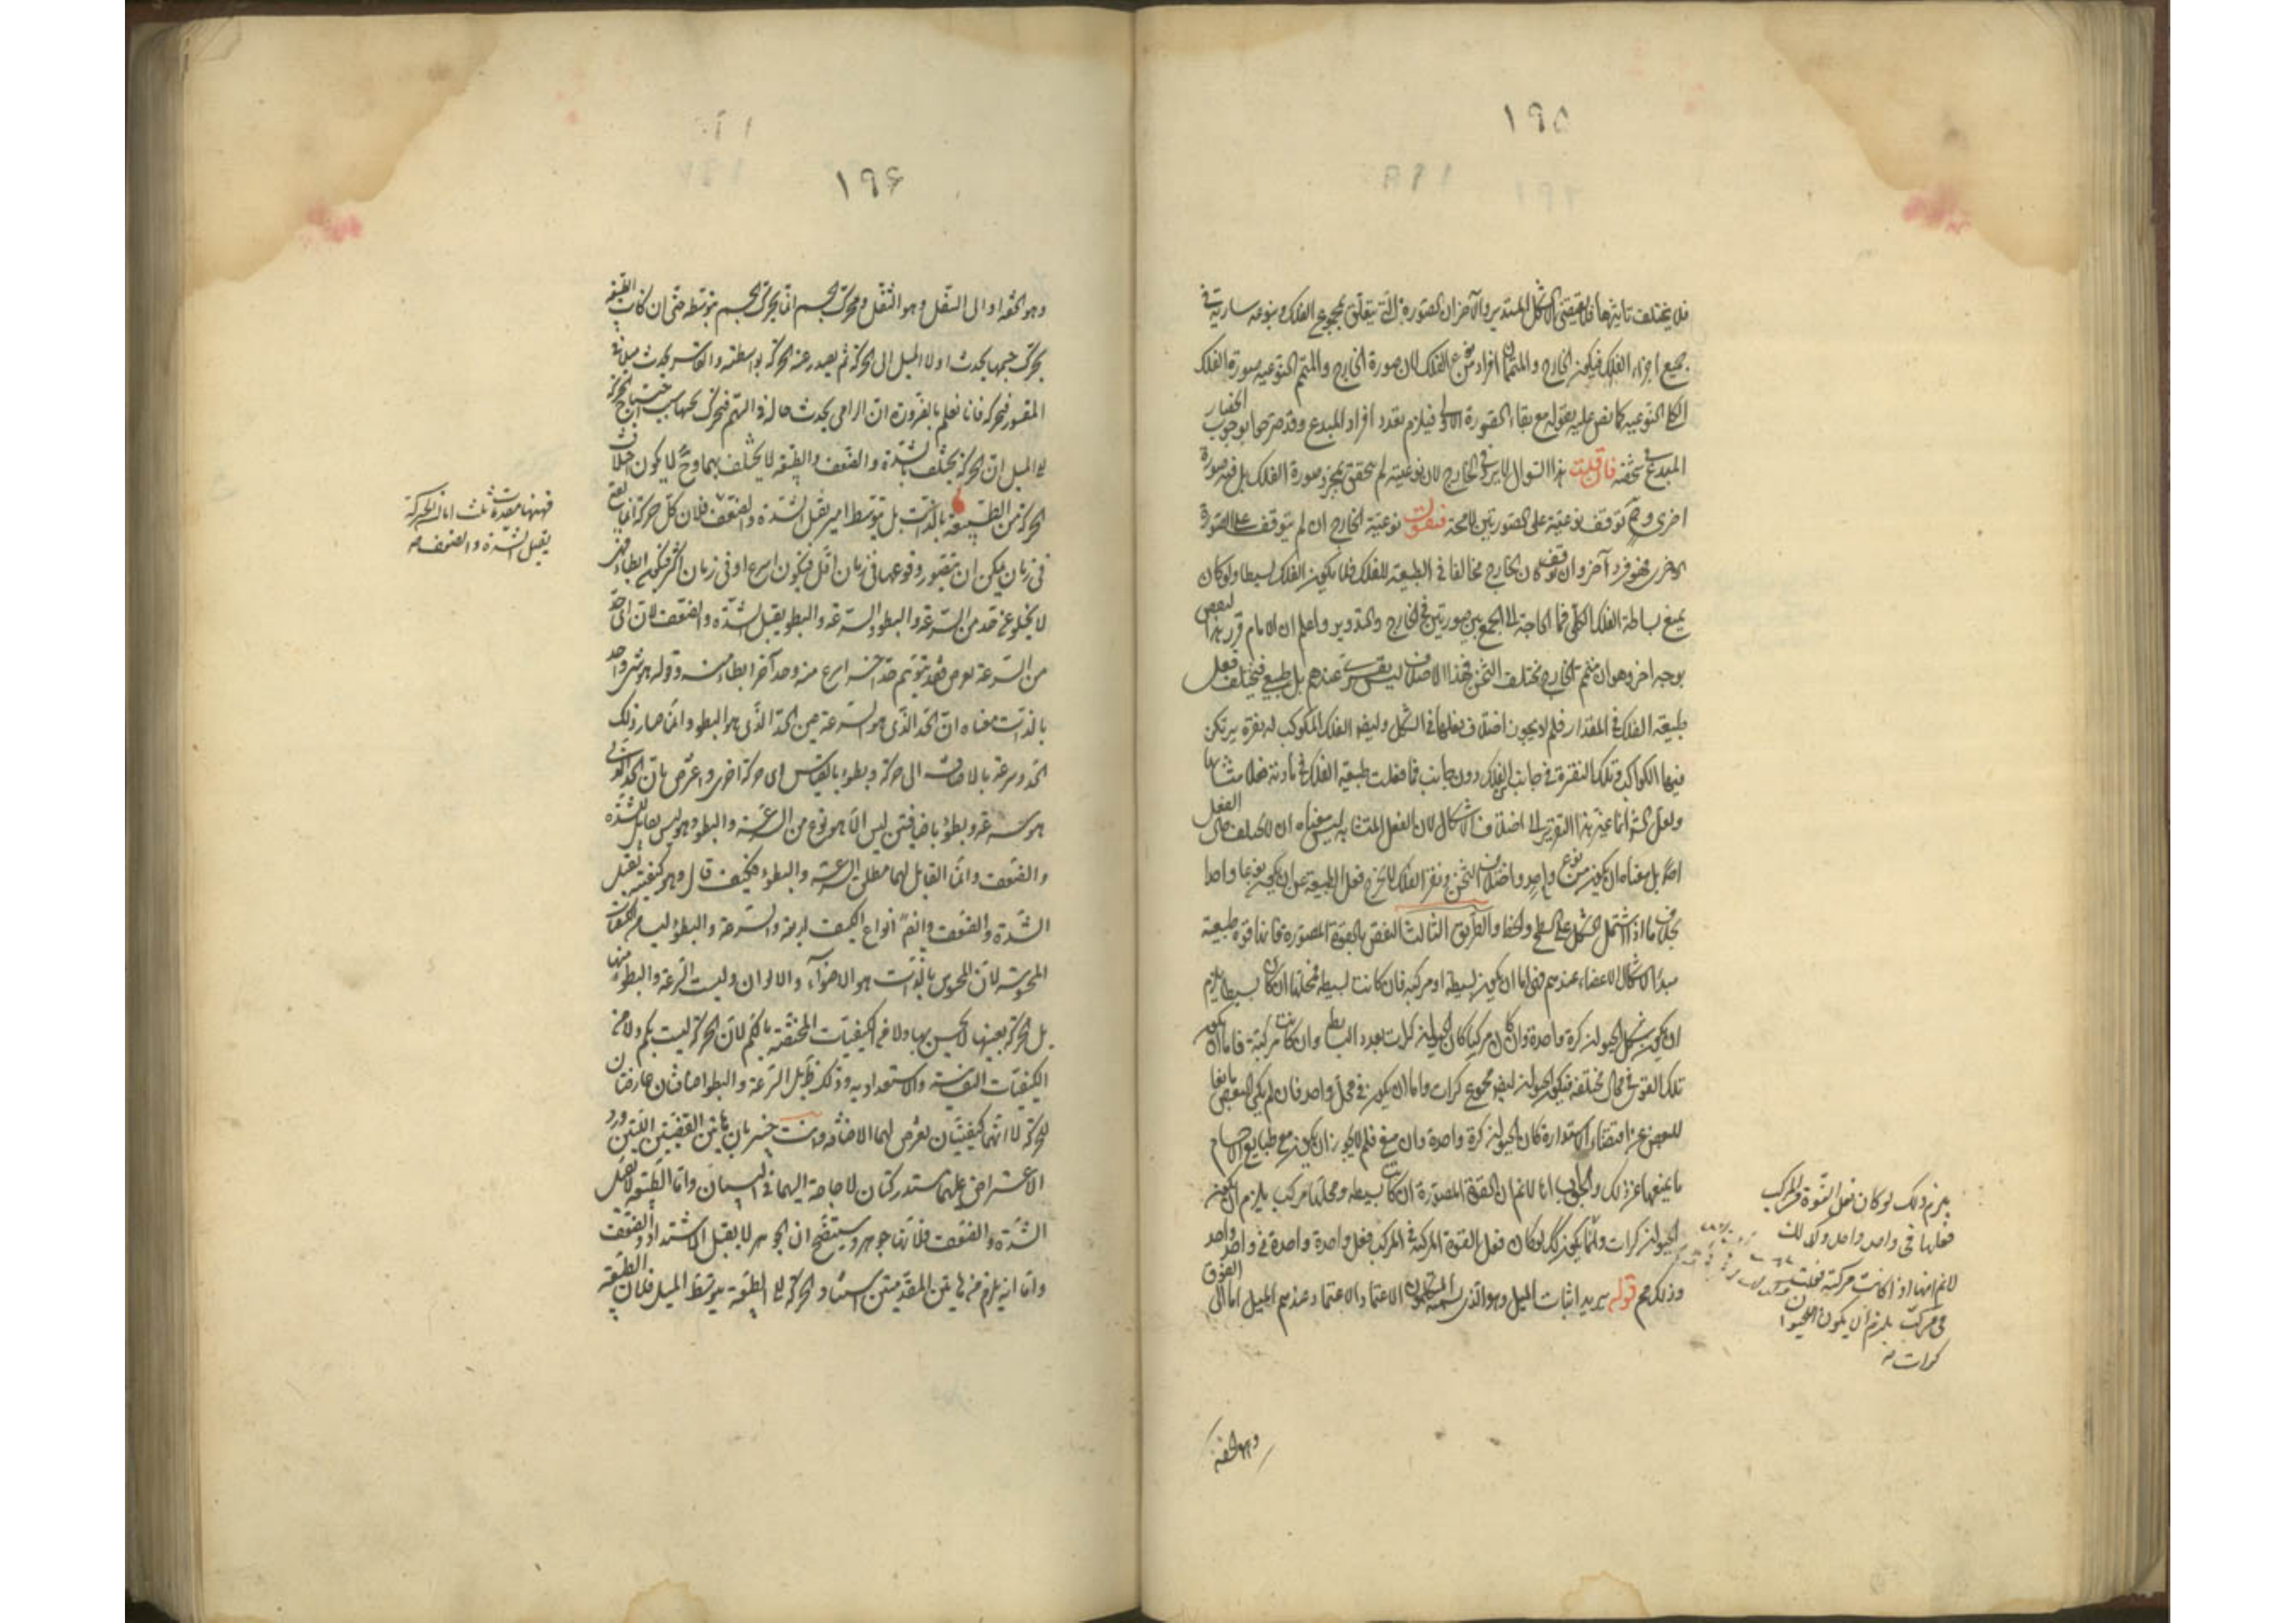 ١٩٥
فلا يختلف تاثيرها فلا يقتضى الا الشكل المستدير والآخر ان الصورة التى يتعلق بمجموع الفلك نوعيه سارية فى
جميع اجزاء الفلك فيكون الخارج والمتممان افراد من نوع الفلك لان صورة الخارج والمتمم النوعيه صورة الفلك
الكلى النوعيه كما نص عليه بقوله مع بقاء الصورة الاولى فيلزم تعدد افراد المبدع وقد صرحوا بوجوب انحصار
المبدع فى شخصه فان قلت هذا السوال لا يرد فى الخارج لان نوعيته لم يتحقق بمجرد صورة الفلك بل فيه صورة
اخرى وح توقف نوعيته على الصورتين لا محة فنقول نوعية الخارج ان لم يتوقف على الصورة
الاخرى فهو فرد آخر وان توقف كان الخارج مخالفا فى الطبيعة للفلك فلا يكون الفلك بسيطا ولو كان
يمنع بساطة الفلك الكلى فما الحاجة الى الجمع بين صورتين فى الخارج والتدوير واعلم ان الامام قرر هذا النقض
بوجه اخر وهو ان متمم الخارج مختلف الثخن فهذا الاختلاف ليس بقسرى عندهم بل طبيعى فيختلف فعل
طبيعة الفلك فى المقدار فلم لا يجوز اختلاف فعلها فى الشكل وايضا الفلك المكوكب له نقرة يرتكن
فيها الكواكب وتلك النقرة فى جانب من الفلك دون جانب فما فعلت طبيعة الفلك فى مادته فعلا متشابها
ولعل الش انما غير هذا التقرير الى اختلاف الاشكال لان الفعل المتشابه ليس معناه ان لا يختلف حال الفعل
اصلا بل معناه ان يكون من نوع واحد واختلاف الثخن ونقر الفلك لا يخرج فعل الطبيعة عن ان يكون نوعا واحدا
بخلاف ما اذا اشتمل الشكل على السطح والخط والطريق الثالث النقض بالقوة المصورة فانها قوة طبيعية
مبدأ الاشكال الاعضاء عندهم فهى اما ان يكون بسيطة او مركبة فان كانت بسيطة فمحلها ان كان بسيطا يلزم
ان يكون شكل الحيوان كرة واحدة وان كان مركبا كان الحيوان كرات بعدد البسايط وان كانت مركبة فاما ان يكون
تلك القوى فى محال مختلفة فيكون الحيوان ايضا مجموع كرات واما ان يكون فى محل واحد فان لم يكن البعض مانعا
للبعض عن اقتضاء الاستدارة كان الحيوان كرة واحدة وان منع فلم لا يجوز ان يكون مع طبايع الاجسام
ما يمنعها عن ذلك والجواب انا لا نم ان القوة المصورة ان كانت بسيطة ومحلها مركب يلزم ان يكون
الحيوان كرات وانما يكون كذلك لو كان فعل القوة المركبة فى المركب فعل واحدة واحدة فى واحد واحد
وذلك مم قوله يريد اثبات الميل وهو الذى يسميه المتكلمون الاعتماد والاعتماد عندهم الميل اما الى الفوق
وهو الخفة
يلزم ذلك لو كان فعل القوة فى المركب
فعلها فى واحد واحد ولا كذلك
لا نم انها اذا كانت مركبة فعلت
فى مركب يلزم ان يكون الحيوان
كرات منه
١٩۶
وهو الخفة او الى السفل وهو الثقل ومحرك الجسم انما يحرك الجسم بتوسطه حتى ان كانت الطبيعة
يحرك جسمها يحدث اولا الميل الى الحركة ثم يصدر عنه الحركة بواسطته والقاسر يحدث ميلا فى
المقسور فيحركه فانا نعلم بالضرورة ان الرامى يحدث حالة فى السهم فيتحرك بحسبها سبب احتياج الحركة
الى الميل ان الحركة يختلف بالشدة والضعف والطبيعة لا يختلف بهما وح لا يكون اختلاف
الحركة من الطبيعة بالذات بل بتوسط امر يقبل الشدة والضعف فلان كل حركة انما يقع
فى زمان يمكن ان يتصور وقوعها فى زمان اقل فيكون اسرع او فى زمان اكثر فيكون ابطاء فهى
لا يخلو عن حد من السرعة والبطؤ والسرعة والبطؤ يقبل الشدة والضعف لان اى حد
من السرعة يعرض فقد يتوهم حد آخر اسرع منه وحد آخر ابطاء منه وقوله هو شى واحد
بالذات معناه ان الحد الذى هو السرعة عين الحد الذى هو البطؤ وانما صار ذلك
الحد سرعة بالاضافة الى حركة وبطؤا بالقياس الى حركة اخرى واعترض بان الحد الذى
هو سرعة وبطؤ باضافتين ليس الا هو نوع من السرعة والبطؤ وهو ليس بقابل للشدة
والضعف وانما القابل لهما مطلق السرعة والبطؤ فكيف قال وهو كيفية يقبل
الشدة والضعف وايضا انواع الكيف اربعة والسرعة والبطؤ ليسا من الكيفيات
المحسوسة لان المحسوس بالذات هو الاضواء والالوان وليست السرعة والبطؤ منها
بل الحركة بعينها لا يحس بها ولا من الكيفيات المختصة بالكم لان الحركة ليست بكم ولا من
الكيفيات النفسانية والاستعدادية وذلك ظ بل السرعة والبطؤ اضافتان عارضتان
للحركة لا انهما كيفيتان يعرض لهما الاضافة وانت خبير بان هاتين القضيتين اللتين ورد
الاعتراض عليهما مستدركتان لا حاجة اليهما فى البيان واما ان الطبيعة لا يقبل
الشدة والضعف فلانها جوهر وسيتضح ان الجوهر لا يقبل الاشتداد والضعف
واما انه يلزم من هاتين المقدمتين استناد الحركة الى الطبيعة بتوسط الميل فلان الطبيعة
فههنا مقدمات ثلث اما ان الحركة
يقبل الشدة والضعف منه